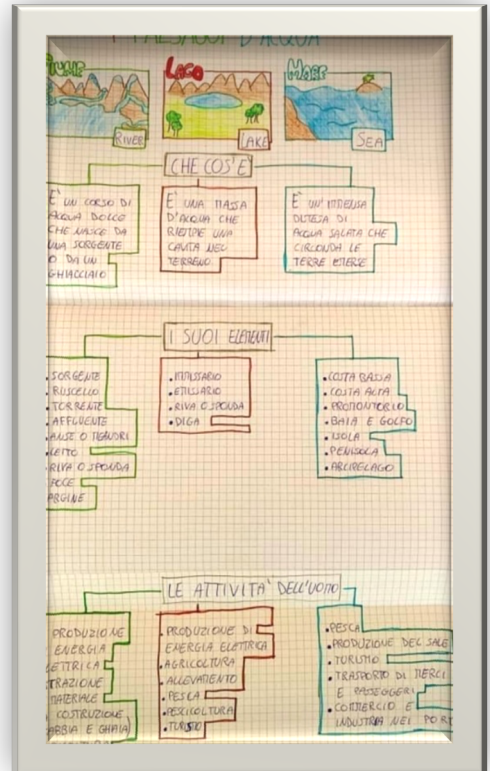 I PAESAGGI D'ACQUA
FIUME
LAGO
MARE
RIVER
LAKE
SEA
CHE COS'È
È UN CORSO DI
ACQUA DOLCE
CHE NASCE DA
UNA SORGENTE
O DA UN
GHIACCIAIO
È UNA MASSA
D'ACQUA CHE
RIEMPIE UNA
CAVITÀ NEL
TERRENO.
È UN'IMMENSA
DISTESA DI
ACQUA SALATA CHE
CIRCONDA LE
TERRE EMERSE
I SUOI ELEMENTI
SORGENTE
RUSCELLO
TORRENTE
AFFLUENTE
ANSE O MEANDRI
LETTO
RIVA O SPONDA
FOCE
ARGINE
• IMMISSARIO
• EMISSARIO
• RIVA O SPONDA
• DIGA
• COSTA BASSA
• COSTA ALTA
• PROMONTORIO
• BAIA E GOLFO
• ISOLA
• PENISOLA
• ARCIPELAGO
LE ATTIVITA' DELL'UOMO
PRODUZIONE
ENERGIA
LETTRICA
TRAZIONE
MATERIALE
COSTRUZIONE
ABBIA E GHAIA)
• PRODUZIONE DI
ENERGIA ELETTRICA
• AGRICOLTURA
• ALLEVAMENTO
• PESCA
• PESCICOLTURA
• TURISMO
• PESCA
• PRODUZIONE DEL SALE
• TURISMO
• TRASPORTO DI MERCI
E PASSEGGERI
• COMMERCIO E
INDUSTRIA NEI PORT